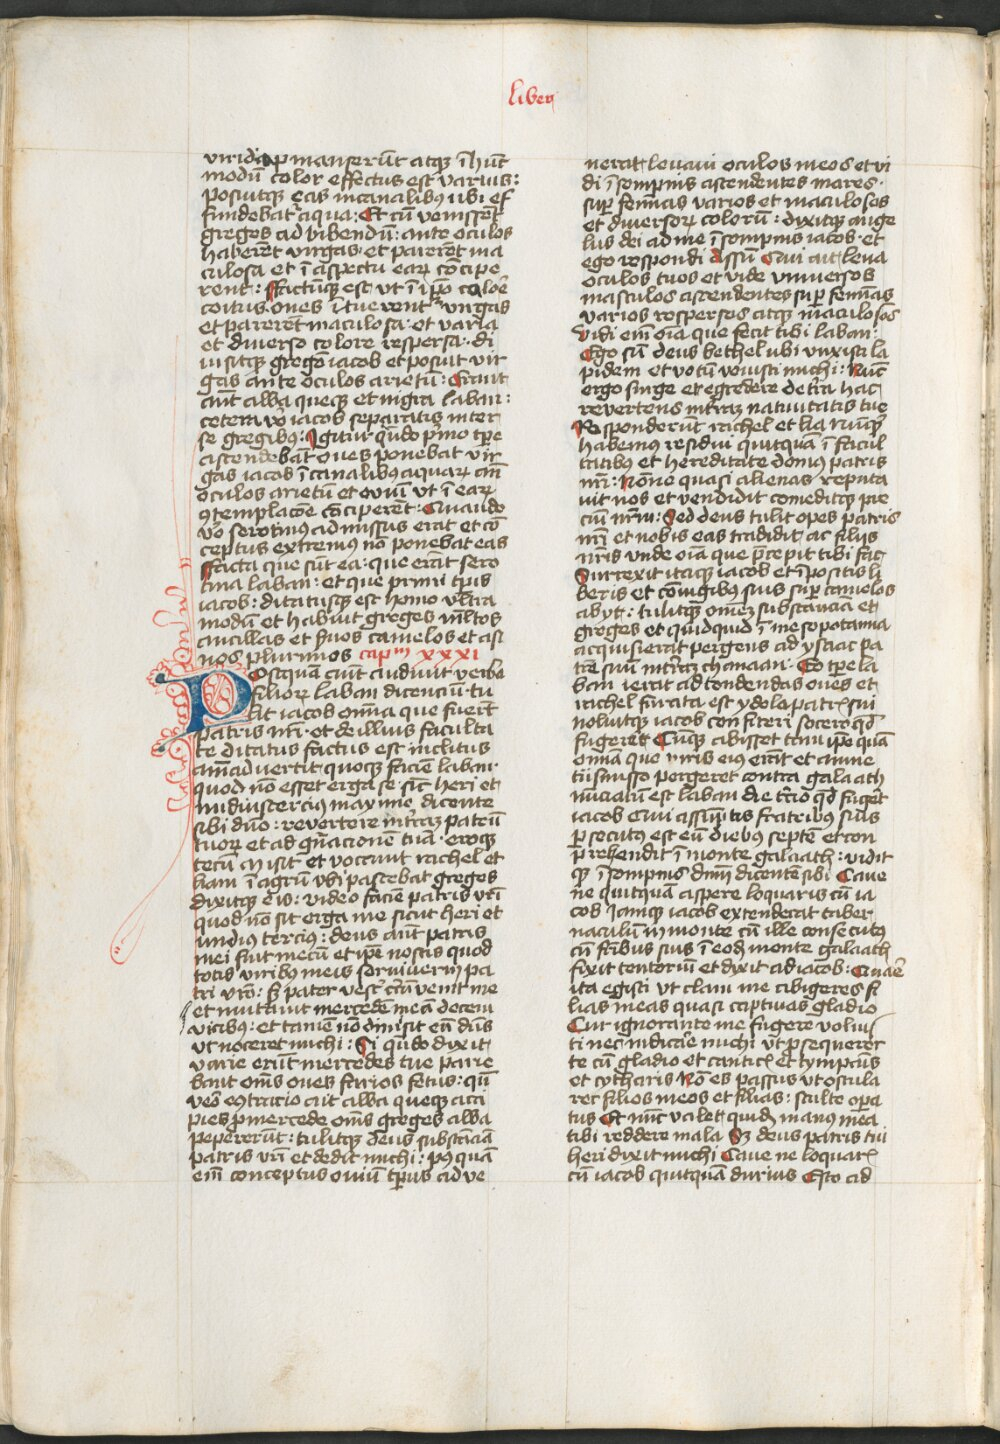 liber
viridia pmanserūt atqꝫ ī hūc
modū color effectus est varius :
posuitqꝫ eas in canalibꝰ ubi ef
fundebat᷑ aqua : Et cū venissēt
greges ad bibendū : ante oculos
haberēt virgas · et parerēt ma
culosa et ī aspectu earꝝ cōcipe
rent : ffactūqꝫ est ut ī ipō calore
coitus oues ītuerent᷑ virgas
et parerēt maculosa · et varia
et diuerso colore respersa · di
uisitqꝫ gregē iacob et posuit vir
gas ante oculos arietū : Erāt
aūt alba queqꝫ et nigra laban :
cetera vō iacob separatis inter
se gregibꝰ : Igitur qūdo pmo tpe
ascendebāt oues ponebat vir
gas iacob ī canalibꝰ aquarꝝ añ
oculos arietū et ouiū ut ī earꝝ
ꝯtemplacōe cōciperēt · Quando
vō serotinꝰ admissus erat et cō
ceptus extremꝰ nō ponebat eas
ffacta que sūt ea · que erāt sero
tina laban : et que primi tpis
iacob : ditatusqꝫ est homo vltra
modū et habuit greges mltos
ancillas et suos camelos et asi
nos plurimos capm xxxi
Postquam aūt audiuit verba
filiorꝝ laban dicenciū · tu
lit iacob omīa que fuerūt
patris nri · et de illius faculta
te ditatus factus est inclitus
aīaduertit quoqꝫ faciē laban ·
quod nō esset erga se sic̄ heri et
nudiustercius maxime dicente
sibi dño : reuertere in terrā patrū
tuorꝝ et ad gnacionē tuā · eroqꝫ
tecū Misit et vocauit rachel et
liam ī agrū vbi pascebat greges
dixitqꝫ eis : video faciē patris vrī
quod nō sit erga me sicut heri et
nudius tercius : deus aūt patris
mei fuit mecū et ipē nostis quod
totis viribꝰ meis seruiuerim pa
tri vrō : sꝫ pater vest᷑ cūuenit me
et mutauit mercedē meā decem
vicibus : et tamē nō dimisit eū dūs
ut noceret michi : Si qūdo dixit
varie erūt mercedes tue parie
bant oms oues farios fetus : qñ
veō ꝯtrario ait alba queqꝫ acci
pies p mercede oms greges alba
pepererūt : tulitqꝫ deus substāciā
patris vrī et dedit michi : pꝰquā
em̄ conceptus ouiū tpus adue
nerat leuaui oculos meos et vi
di ī sompnis ascendentes mares ·
sup femīas varios et maculosos
et diuersorꝝ colorū : dixitqꝫ ange
lus dei ad me ī sompnis iacob · et
ego respondi Assū Qui ait leua
oculos tuos et vide vniuersos
masculos ascendentes sup femīas
varios respersos atqꝫ maculosos
vidi em̄ oīa que fecit tibi laban :
Ego sū deus bethel ubi vnxisti la
pidem et votū vouisti michi : Nūc
ergo surge et egredere de tra hac
reuertens in terrā natiuitatis tue
Responderūt rachel et lia nūqꝫ
habemus residui quitquā ī facul
tatibꝰ et hereditate domꝰ patris
nri : Nōne quasi alienas reputa
uit nos et vendidit comeditqꝫ pre
ciū nrm : Sed deus tulit opes patris
nri et nobis eas tradidit ac filiis
nris vnde oīa que pcepit tibi fac
Surrexit itaqꝫ iacob et ī positis li
beris et coniugibꝰ suis sup camelos
abyt : tulitqꝫ omēꝫ substanciā et
greges et quidquid ī mesopotamia
acquisierat pergens ad ysaac pa
trē suū in terrā chanaan · Eo tpe la
ban ierat ad tondendas oues et
rachel furata est ydola patrꝭ sui
noluitqꝫ iacob confiteri socero qd
fugeret Cūqꝫ abisset tam ipe quā
omīa que iuris eiꝰ erāt et amne
tiismisso pergeret contra galaath
nūciatū est laban die trcio qd fugēt
iacob Qui assūptis fratribꝰ suis
psecutꝰ est eū diebꝰ septē et con
prehendit ī monte galaath : vidit
qꝫ ī sompnis dnm dicentē sibi Caue
ne quitquā aspere loquaris cū ia
cob Iamqꝫ iacob extenderat taber
naculū in monte cū ille consecutꝰ
cū fribus suis ī eodꝫ monte galaath
fixit tentoriū et dixit ad iacob : Quare
ita egisti ut clam me abigeres fi
lias meas quasi captiuas gladio
Cur ignorante me fugere volui
sti nec indicare michi ut psequerer
te cū gladio et canticꝭ et tympanis
et cytharis Nō es passus ut oscula
rer filios meos et filias : stulte opa
tus Et nūc valet quidꝫ manꝰ mea
tibi reddere mala Sꝫ deus patris tui
heri dixit michi Caue ne loquarꝭ
cū iacob quitquā durius Esto ad